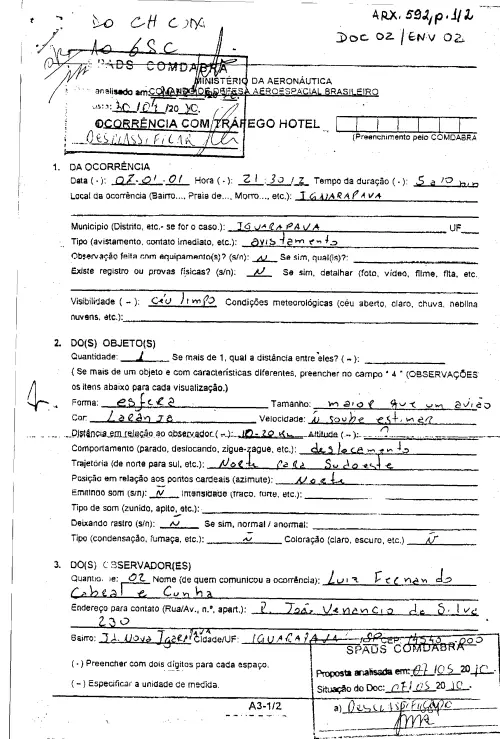 ARX. 592, p. 1/2
DOC 02 / ENV 02
DO CH CODA
AO 6SC
SPADS COMDABRA
MINISTÉRIO DA AERONÁUTICA
analisado em
COMANDO DE DEFESA AEROESPACIAL BRASILEIRO
OCORRÊNCIA COM TRÁFEGO HOTEL
DESCLASSIFICAR
(Preenchimento pelo COMDABRA
1. DA OCORRÊNCIA
Data (·): 07.01.01 Hora (·): 21:30/Z Tempo da duração (·): 5 a 10 min
Local da ocorrência (Bairro..., Praia de..., Morro..., etc.): IGUARAPAVA
Município (Distrito, etc.- se for o caso.): IGUARAPAVA UF
Tipo (avistamento, contato imediato, etc.): avistamento
Observação feita com equipamento(s)? (s/n): N Se sim, qual(is)?:
Existe registro ou provas físicas? (s/n): N Se sim, detalhar (foto, vídeo, filme, fita, etc.
Visibilidade (~): céu limpo Condições meteorológicas (céu aberto, claro, chuva, neblina
nuvens, etc.):
2. DO(S) OBJETO(S)
Quantidade: 1 Se mais de 1, qual a distância entre eles? (~):
( Se mais de um objeto e com características diferentes, preencher no campo " 4 " (OBSERVAÇÕES
os itens abaixo para cada visualização.)
Forma: esfera Tamanho: maior que um avião
Cor: Laranja Velocidade: Ñ soube estimar
Distância em relação ao observador (~): 10-20 Km Altitude (~): ?
Comportamento (parado, deslocando, zigue-zague, etc.): deslocamento
Trajetória (de norte para sul, etc.): Norte para Sudoeste
Posição em relação aos pontos cardeais (azimute): Norte
Emitindo som (s/n): Ñ Intensidade (fraco, forte, etc.):
Tipo de som (zunido, apito, etc.):
Deixando rastro (s/n): Ñ Se sim, normal / anormal:
Tipo (condensação, fumaça, etc.): Ñ Coloração (claro, escuro, etc.) Ñ
3. DO(S) OBSERVADOR(ES)
Quantidade: 02 Nome (de quem comunicou a ocorrência): Luiz Fernando
Cabral e Cunha
Endereço para contato (Rua/Av., n.º, apart.): R. João Venancio da Silva
230
Bairro: Jd. Nova Cidade/UF: SP CEP: 14540-000
(·) Preencher com dois dígitos para cada espaço.
(~) Especificar a unidade de medida.
SPADS COMDABRA
Proposta analisada em: 07/05 2010
Situação do Doc: 07/05 2010.
a) Desclassificado
A3-1/2